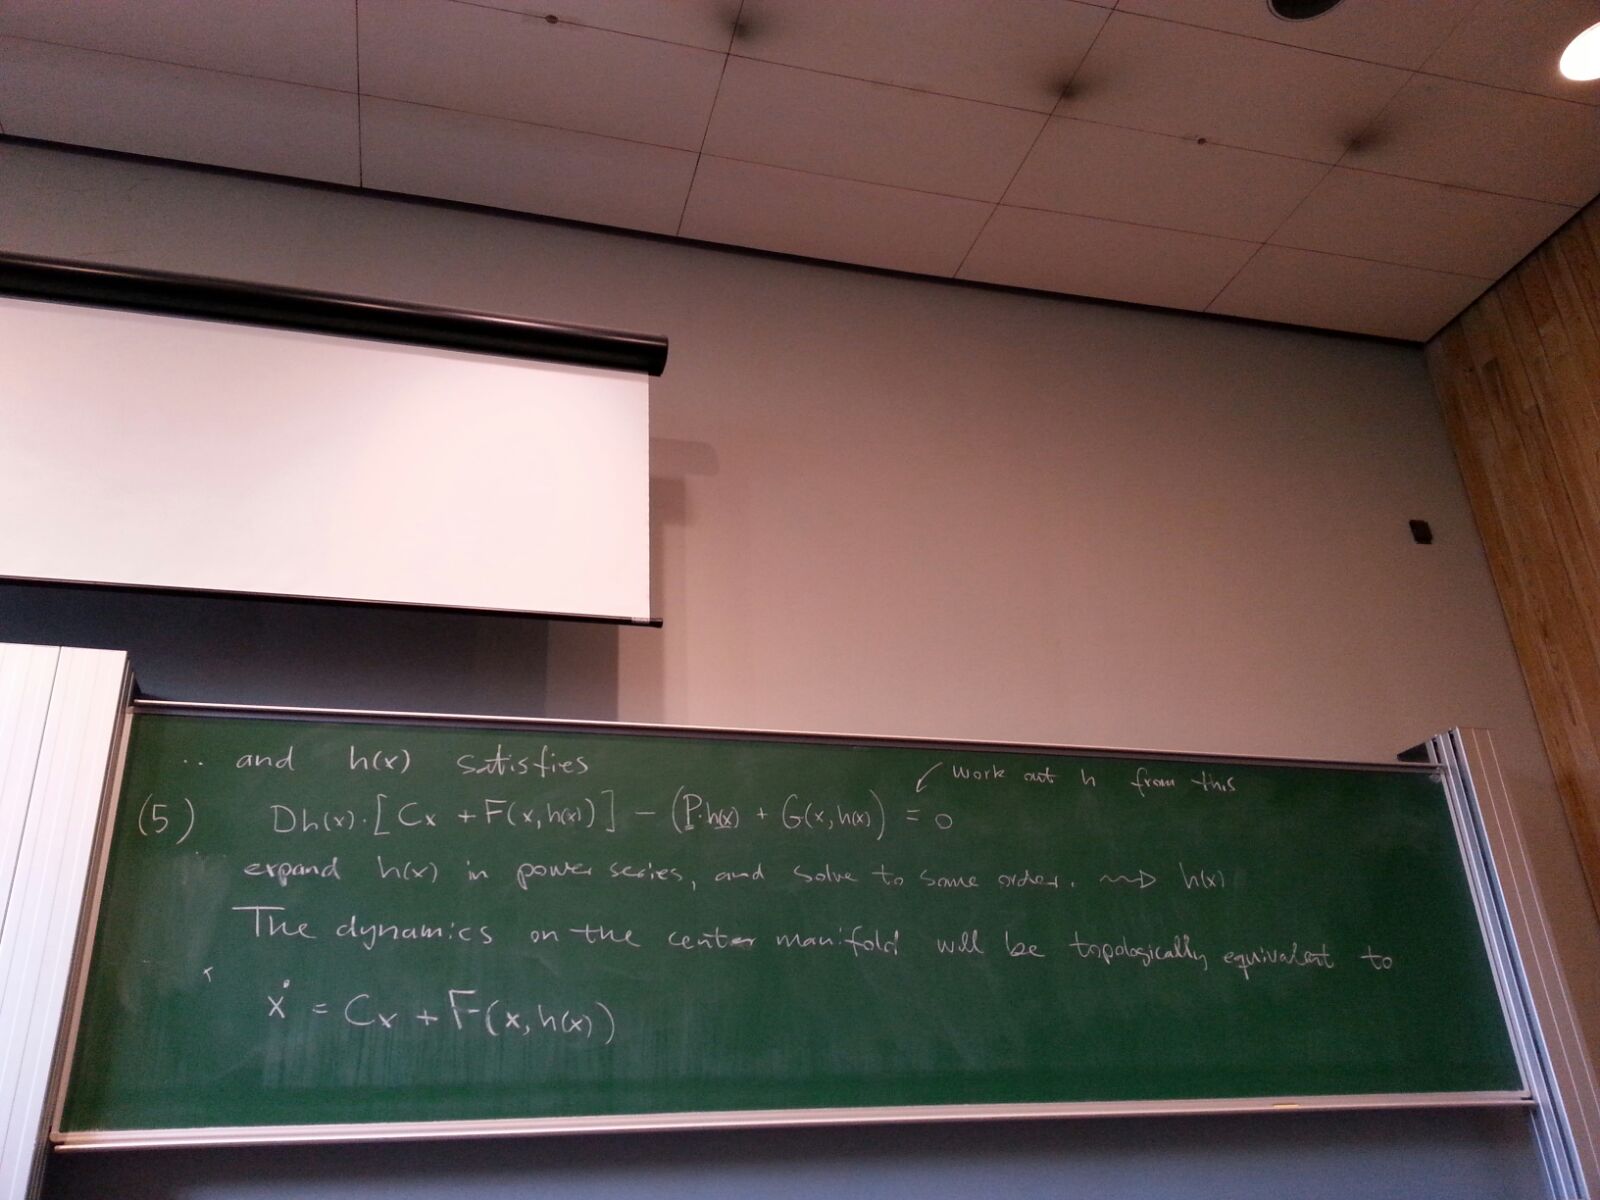 .. and h(x) satisfies
work out h from this
(5) Dh(x)·[Cx + F(x,h(x))] – (P·h(x) + G(x,h(x)) = 0
expand h(x) in power series, and solve to some order. ~~> h(x)
The dynamics on the center manifold will be topologically equivalent to
ẋ = Cx + F(x,h(x))